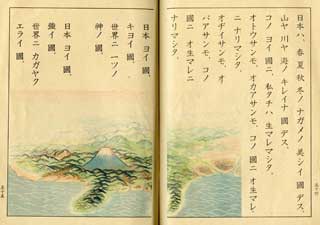 日本ハ、春夏秋冬ノナガメノ美シイ國デス。
山ヤ川ヤ海ノキレイナ國デス。
コノヨイ國ニ、私タチハ生マレマシタ。
オトウサンモ、オカアサンモ、コノ國ニオ生マレ
ニナリマシタ。
オヂイサンモ、オ
バアサンモ、コノ
國ニオ生マレニ
ナリマシタ。
日本ヨイ國、
キヨイ國。
世界ニ一ツノ
神ノ國。
日本ヨイ國、
強イ國。
世界ニカガヤク
エライ國。